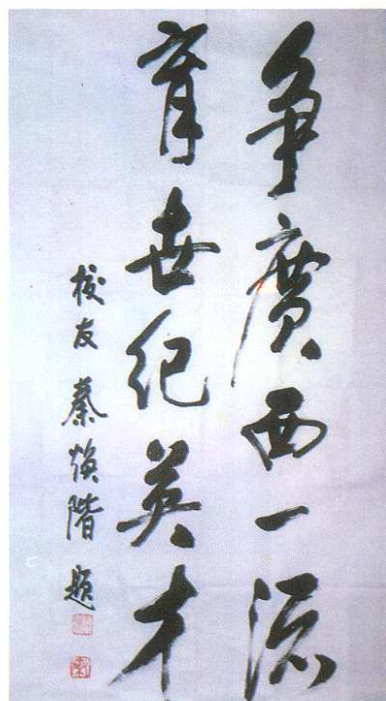 争廣西一流
育世纪英才
校友 秦焕階 题